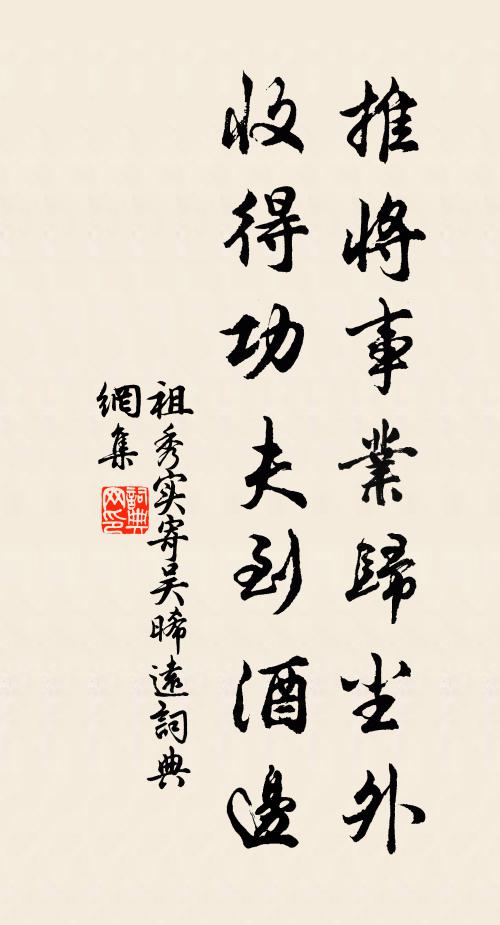 推将事業歸尘外
收得功夫到酒邊
祖秀实寄吴晞遠詞典
網集
詞典网印